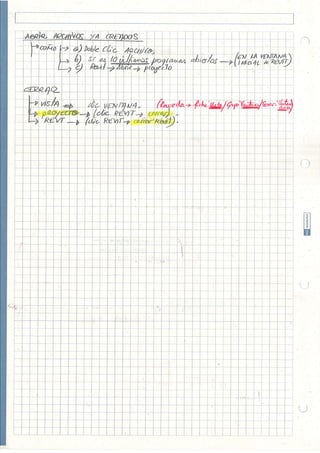 ABRIR ARCHIVOS YA CREADOS
como → a) Doble Clic ARCHIVO.
→ b) Si es 10 últimos programas abiertos → (EN LA VENTANA INICIAL de REVIT)
→ c) Revit → Abrir → proyecto
CERRAR
→ VISTA → clic VENTANA. (Izquierda → ficha Vista / Grupo Ventana /
→ PROYECTO → (clic REVIT → CERRAR)
→ REVIT → (clic REVIT → cerrar Revit).